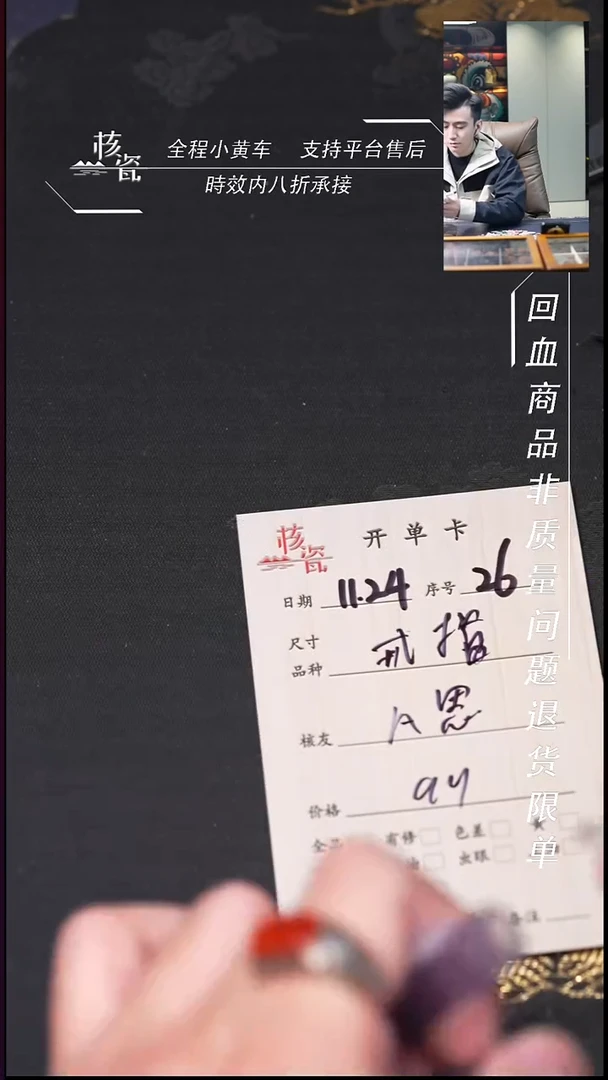 核瓷
全程小黄车 支持平台售后
時效内八折承接
回血商品非质量问题退货限单
核瓷
开单卡
日期 11.24 序号 26
尺寸
品种 戒指
核友 A恩
价格
全品 有修 色差
虫眼
备注